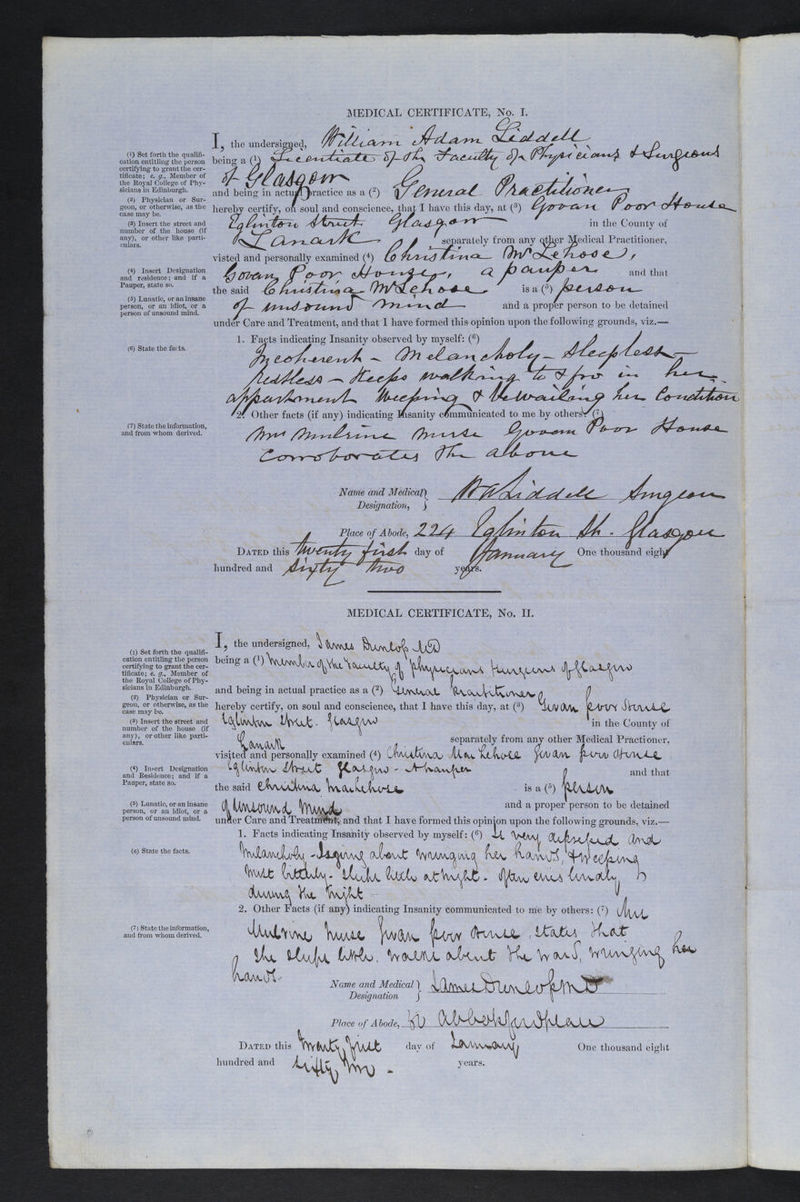 MEDICAL CERTIFICATE, No. I.
I, the undersigned, William Adam Liddell
(1) Set forth the qualification entitling the person certifying to grant the certificate; e. g., Member of the Royal College of Physicians in Edinburgh.
being a (1) Licentiate of the Faculty of Physicians & Surgeons
of Glasgow
(2) Physician or Surgeon, or otherwise, as the case may be.
and being in actual practice as a (2) General Practitioner
hereby certify, on soul and conscience, that I have this day, at (3) Govan Poor House
(3) Insert the street and number of the house (if any), or other like particulars.
Eglinton Street Glasgow in the County of
Lanark separately from any other Medical Practitioner,
visted and personally examined (4) Christina McLehose,
(4) Insert Designation and residence; and if a Pauper, state so.
Govan Poor House, a pauper and that
the said Christina McLehose is a (5) person
(5) Lunatic, or an insane person, or an idiot, or a person of unsound mind.
of unsound mind and a proper person to be detained
under Care and Treatment, and that I have formed this opinion upon the following grounds, viz.—
1. Facts indicating Insanity observed by myself: (6)
(6) State the facts.
Incoherent - Melancholy - Sleepless -
Restless - Keeps walking to & fro in her
appartment weeping & bewailing her Condition
2. Other facts (if any) indicating Insanity communicated to me by others: (7)
(7) State the information, and from whom derived.
Mrs Mulrine Nurse Govan Poor House
corroborates the above
Name and Medical Designation, } W A Liddell Surgeon
Place of Abode, 224 Eglinton St. Glasgow
DATED this twenty first day of January One thousand eight
hundred and sixty two years.
MEDICAL CERTIFICATE, No. II.
I, the undersigned, James Dunlop MD
(1) Set forth the qualification entitling the person certifying to grant the certificate; e. g., Member of the Royal College of Physicians in Edinburgh.
being a (1) Member of the Faculty of physicians & surgeons of Glasgow
(2) Physician or Surgeon, or otherwise, as the case may be.
and being in actual practice as a (2) General Practitioner
hereby certify, on soul and conscience, that I have this day, at (3) Govan poor House
(3) Insert the street and number of the house (if any), or other like particulars.
Eglinton Street. Glasgow in the County of
Lanark separately from any other Medical Practioner,
visited and personally examined (4) Christina MacLehose Govan poor House
(4) Insert Designation and Residence; and if a Pauper, state so.
Eglinton Street Glasgow - A pauper and that
the said Christina MacLehose is a (5) person
(5) Lunatic, or an insane person, or an idiot, or a person of unsound mind.
of Unsound Mind and a proper person to be detained
under Care and Treatment, and that I have formed this opinion upon the following grounds, viz.—
1. Facts indicating Insanity observed by myself: (6) Is very depressed and
(6) State the facts.
Melancholy - Is going about wringing her hands, & weeping
most bitterly - Sleeps little at night - often cries loudly
during the night
2. Other Facts (if any) indicating Insanity communicated to me by others: (7) Mrs
(7) State the information, and from whom derived.
Mulrine Nurse Govan poor House, states that
she sleeps little, walks about the ward, wringing her
hands
Name and Medical Designation } James Dunlop MD
Place of Abode, Abbotsford place
DATED this Twenty first day of January One thousand eight
hundred and Sixty two - years.